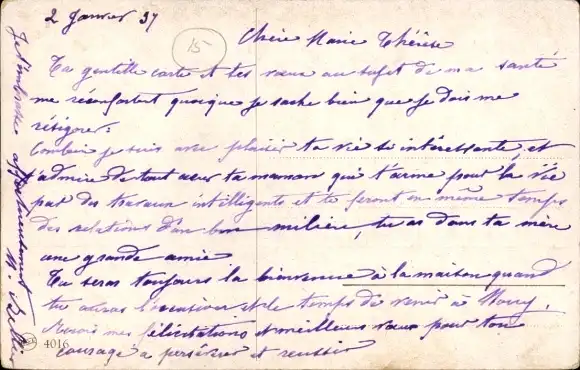 2 Janvier 37
15
Chère Marie Thérèse
Ta gentille carte et tes vœux au sujet de ma santé
me réconfortent quoique je sache bien que je dois me
résigner.
Combien je suis avec plaisir ta vie si intéressante et
j'admire de tout cœur ta maman qui t'arme pour la vie
par des travaux intelligents et te feront en même temps
des relations d'un bon milieu, tu as dans ta mère
une grande amie
Tu seras toujours la bienvenue à la maison quand
tu auras l'occasion et le temps de venir à
mes félicitations et meilleurs vœux pour ton
courage à persévérer et réussir
Je t'embrasse affectueusement
4016